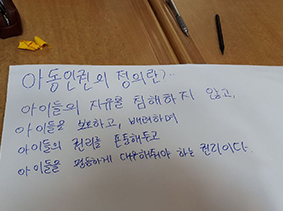 아동인권의 정의란?..
아이들의 자유를 침해하지 않고,
아이들을 보호하고, 배려하며
아이들의 권리를 존중해주고
아이들을 평등하게 대우해줘야 하는 권리이다..